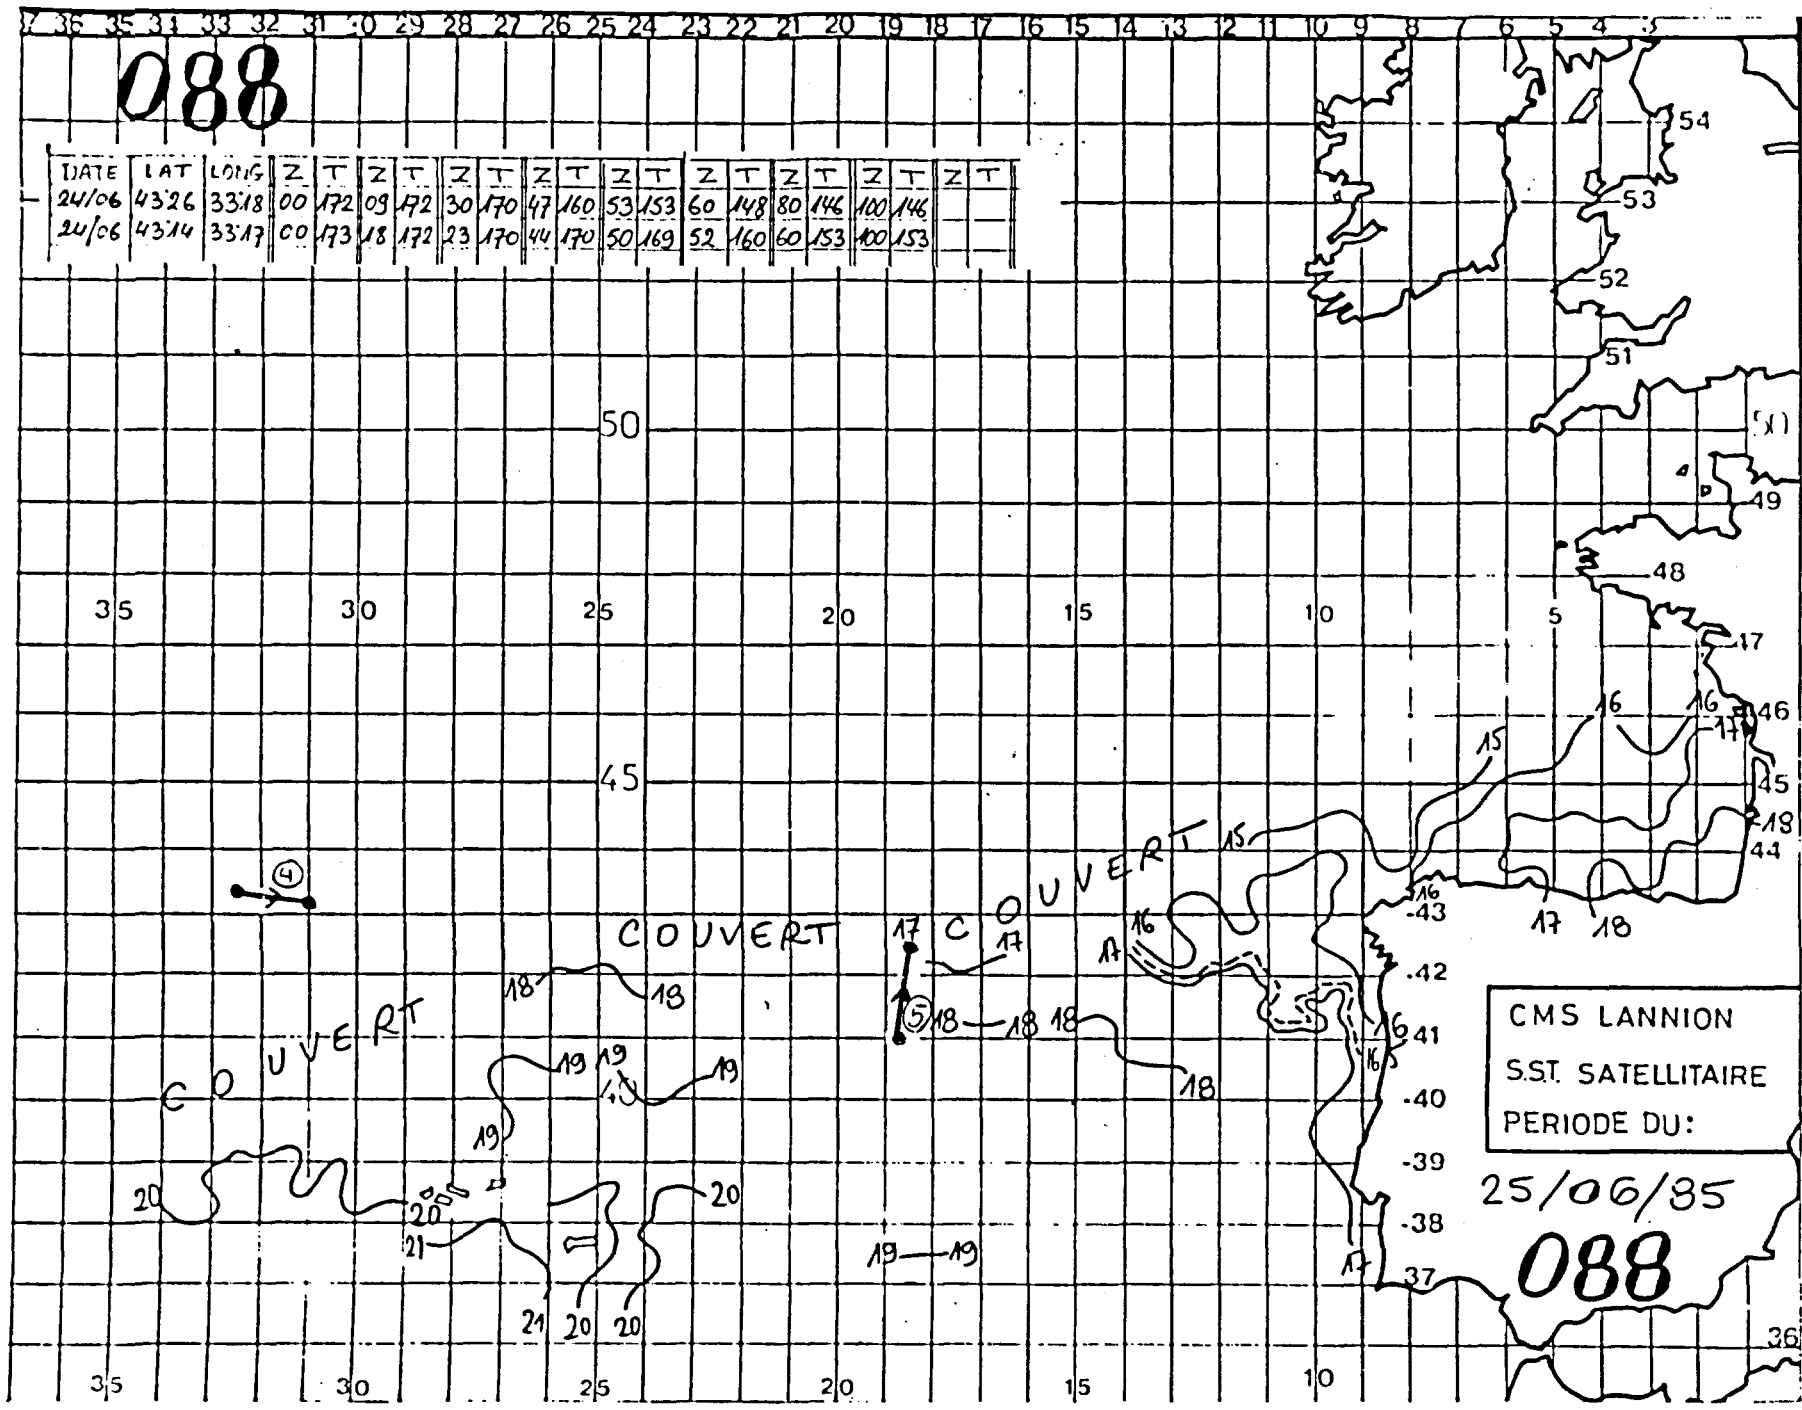 37 36 35 34 33 32 31 30 29 28 27 26 25 24 23 22 21 20 19 18 17 16 15 14 13 12 11 10 9 8 7 6 5 4 3
088
54
DATE LAT LONG Z T Z T Z T Z T Z T Z T Z T Z T Z T
24/06 43°26 33°18 00 172 09 172 30 170 47 160 53 153 60 148 80 146 100 146
24/06 43°14 33°17 00 173 18 172 23 170 44 170 50 169 52 160 60 153 100 153
53
52
51
50 50
49
48
35 30 25 20 15 10 5
47
16 16 46
15 17
45 45
18
COUVERT 15 44
4
16
-43
COUVERT 17 17 16 17 17 18
18 18 -42
5 18 18 18 16 -41
COUVERT 19 19 19 16
40 18 -40
19
-39
20 20 20
21 -38
19 19 17 37
21 20 20
36
35 30 25 20 15 10
CMS LANNION
S.S.T. SATELLITAIRE
PERIODE DU:
25/06/85
088